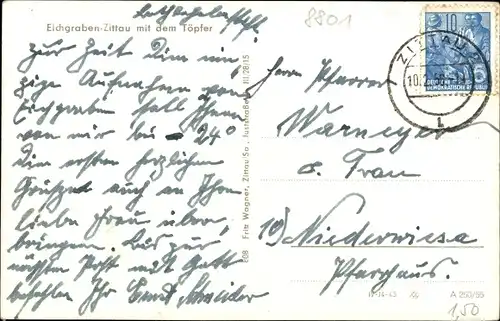 8801
Eichgraben-Zittau mit dem Töpfer
zur Zeit dem ein
zige Aufnahmen vom
Eichgraben soll Ihnen
von mir bei -24°
die ersten herzlichen
Grüße auch an Ihre
liebe Frau über
bringen. Bis zur
nächsten Post mit Gott
befohlen Ihr Ernst Schneider
Fritz Wagner, Zittau/Sa., Juststraße III/28/15
Herrn Pfarrer
Warneyer
u. Frau
10) Niederwiesa
Pfarrhaus.
10
DEUTSCHE
DEMOKRATISCHE REPUBLIK
ZITTAU
A 250/55
1,50